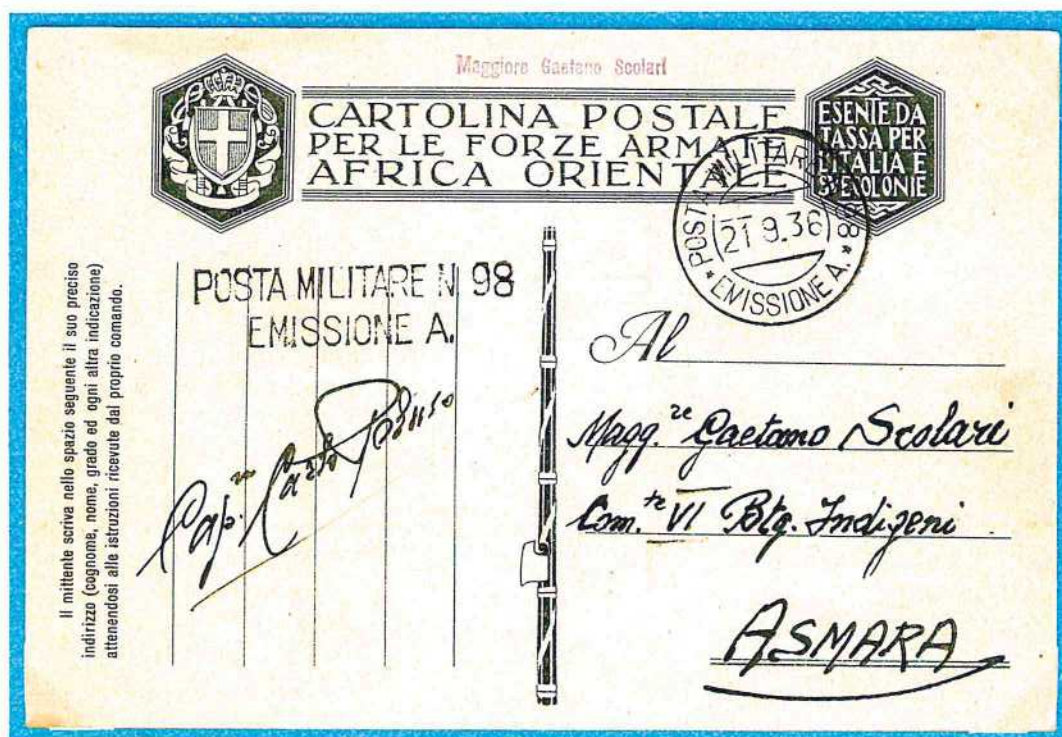 Maggiore Gaetano Scolari
CARTOLINA POSTALE
PER LE FORZE ARMATE
AFRICA ORIENTALE
ESENTE DA
TASSA PER
L'ITALIA E
SUE COLONIE
POSTA MILITARE
98
21 9.36
EMISSIONE A.
POSTA MILITARE N. 98
EMISSIONE A.
Il mittente scriva nello spazio seguente il suo preciso
indirizzo (cognome, nome, grado ed ogni altra indicazione)
attenendosi alle istruzioni ricevute dal proprio comando.
Cap. Carlo
Al
Magg.re Gaetano Scolari
Com.te VI Btg. Indigeni
ASMARA